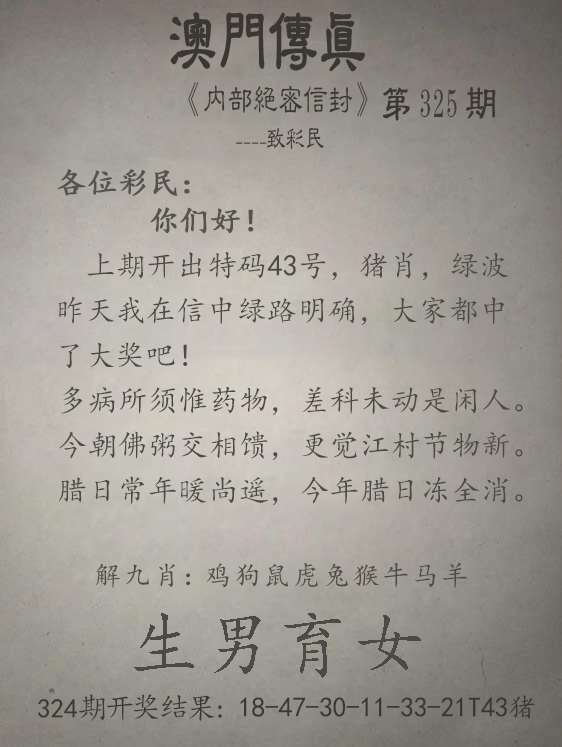 澳門傳眞
《内部絕密信封》第325期
----致彩民
各位彩民：
你们好！
上期开出特码43号，猪肖，绿波
昨天我在信中绿路明确，大家都中
了大奖吧！
多病所须惟药物，差科未动是闲人。
今朝佛粥交相馈，更觉江村节物新。
腊日常年暖尚遥，今年腊日冻全消。
解九肖：鸡狗鼠虎兔猴牛马羊
生男育女
324期开奖结果：18-47-30-11-33-21T43猪